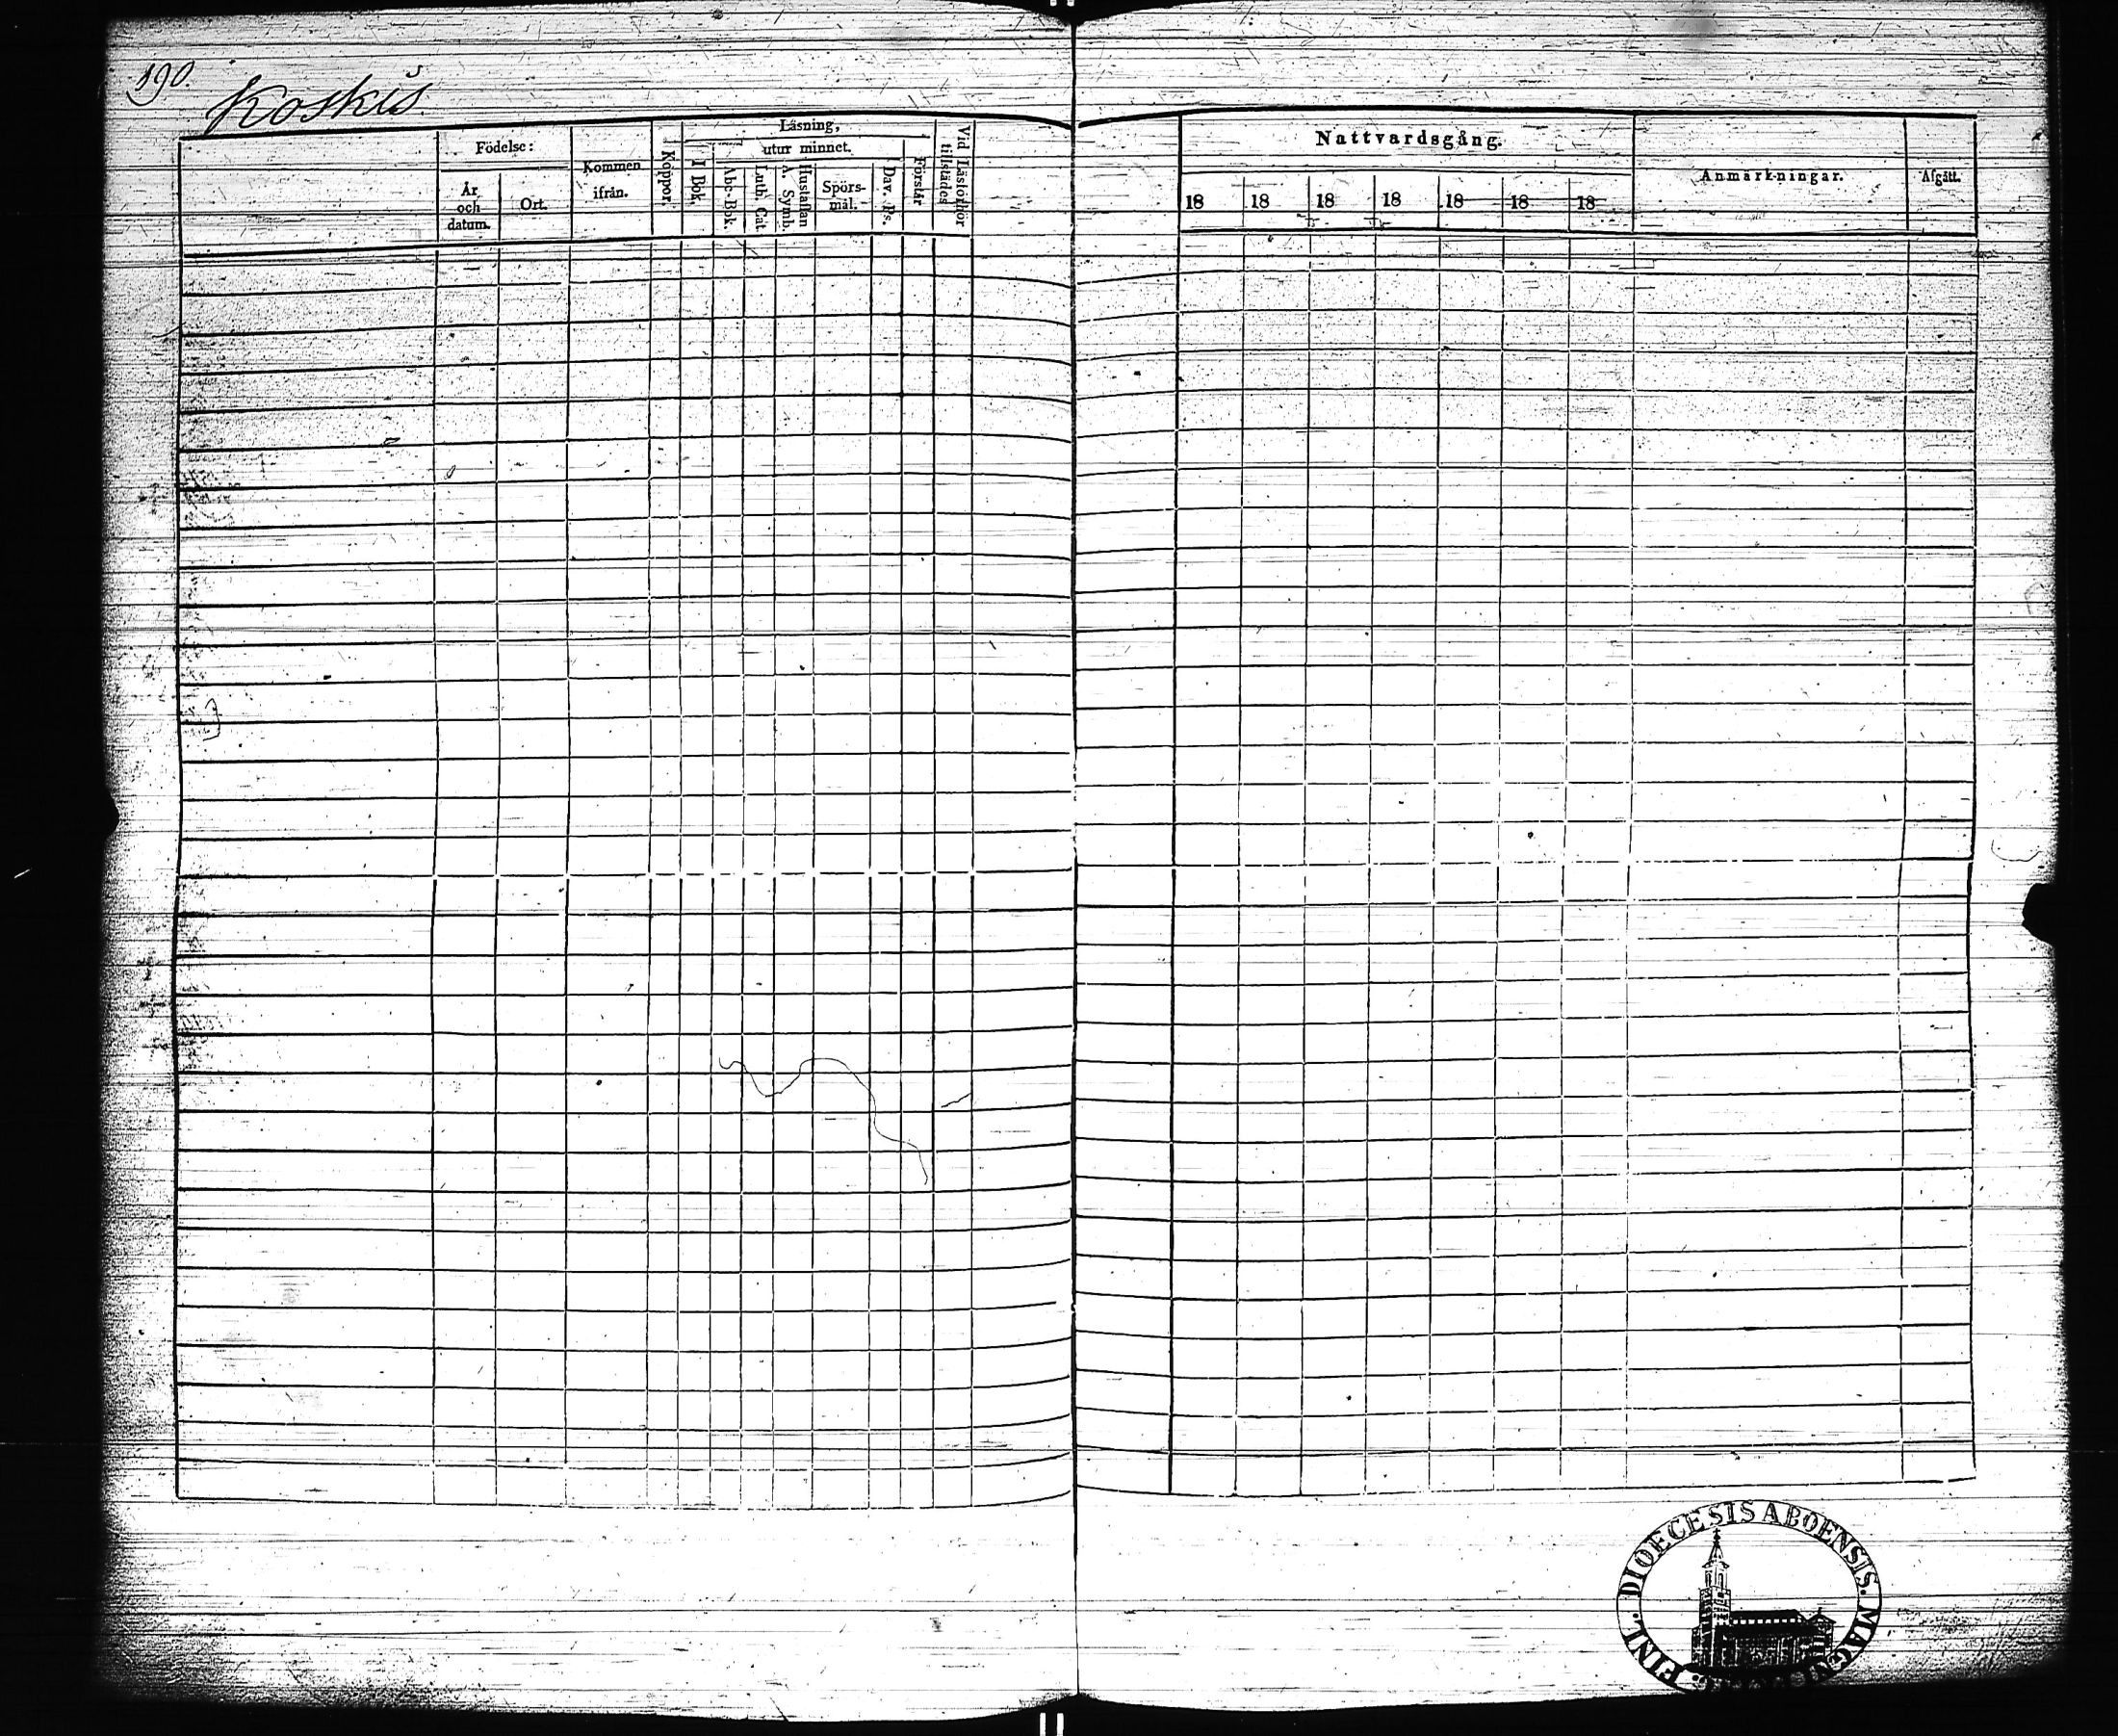 190.
Koskis
Födelse:
År och datum.
Ort.
Kommen ifrån.
Koppor.
Läsning,
I Bok.
utur minnet.
Abc-Bok.
Luth. Cat.
Hustaflan A. Symb.
Spörs-mål.
Dav. Ps.
Förstår
Vid Läsförhör tillstädes
Nattvardsgång.
18 18 18 18 18 18 18
Anmärkningar.
Afgått.
FINL. DIOECESIS ABOENSIS. MAGN.